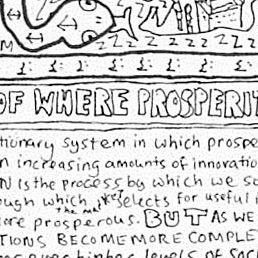 M Z Z Z Z Z Z Z Z
OF WHERE PROSPERIT
tionary system in which prospe
n increasing amounts of innovatio
N is the process by which we so
ough which selects for useful i
ore prosperous. BUT AS WE
TIONS BECOME MORE COMPLE